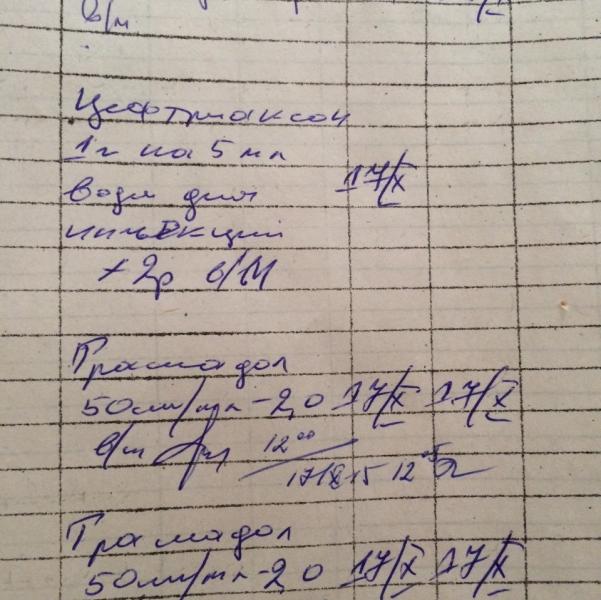 в/м
Цефтриаксон
1г на 5 мл
воды для 17/X
инъекций
× 2р в/м
Трамадол
50мг/мл - 2,0 17/X 17/X
в/м 12⁰⁰
17/X 15 12⁰⁵
Трамадол
50мг/мл - 2,0 17/X 17/X